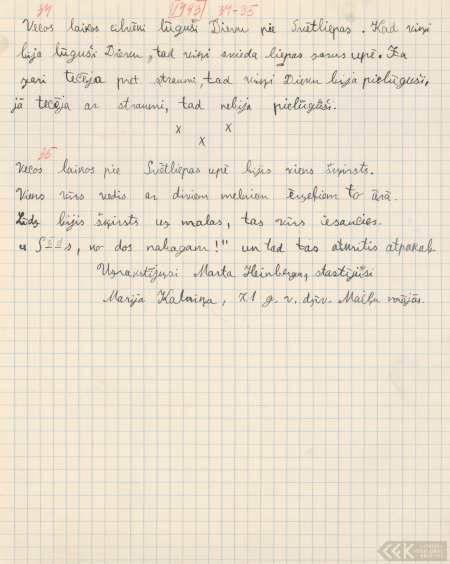 34 1793 34-35
Vecos laikos cilvēki lūguši Dievu pie Svētliepas. Kad viņi
bija lūguši Dievu, tad viņi svieda liepas zarus upē. Ja
zari tecēja pret straumi, tad viņi Dievu bija pielūguši,
jā tecēja ar straumi, tad nebija pielūguši.
x x
x
35
Vecos laikos pie Svētliepas upē bijis viens šķirsts.
Viens vīrs vedis ar diviem melniem ērzeļiem to ārā.
Līdz bijis šķirsts uz malas, tas vīrs iesaucies.
ko dos nabagam!" un tad tas aturitis atpakaļ.
Uzrakstījusi Marta Heinberga, stāstījusi
Marija Kalniņa, 71 g. v. dzīv.
LATVIEŠU
FOLKLORAS
KRĀTUVE